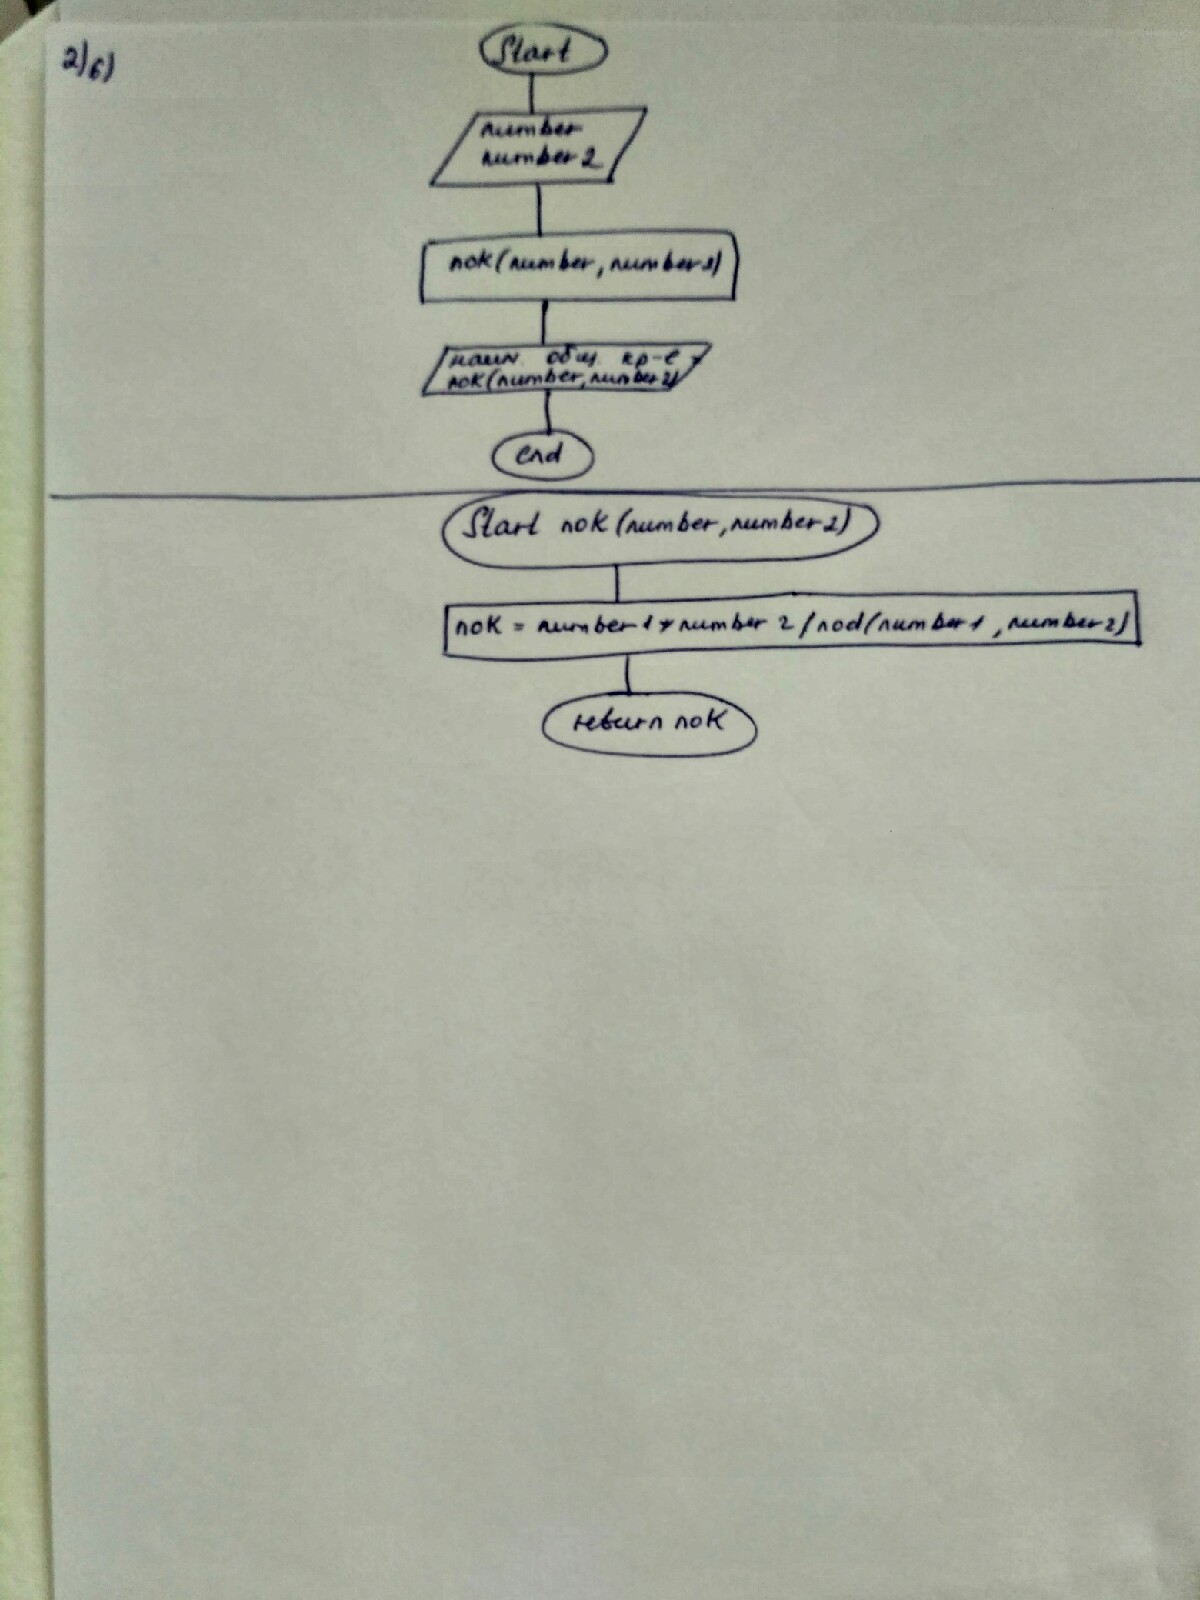 2)б)
Start
number
number 2
nok(number, number 2)
наим. общ. кр-е
nok(number, number 2)
end
Start nok (number, number 2)
nok = number 1 * number 2 / nod(number 1, number 2)
return nok